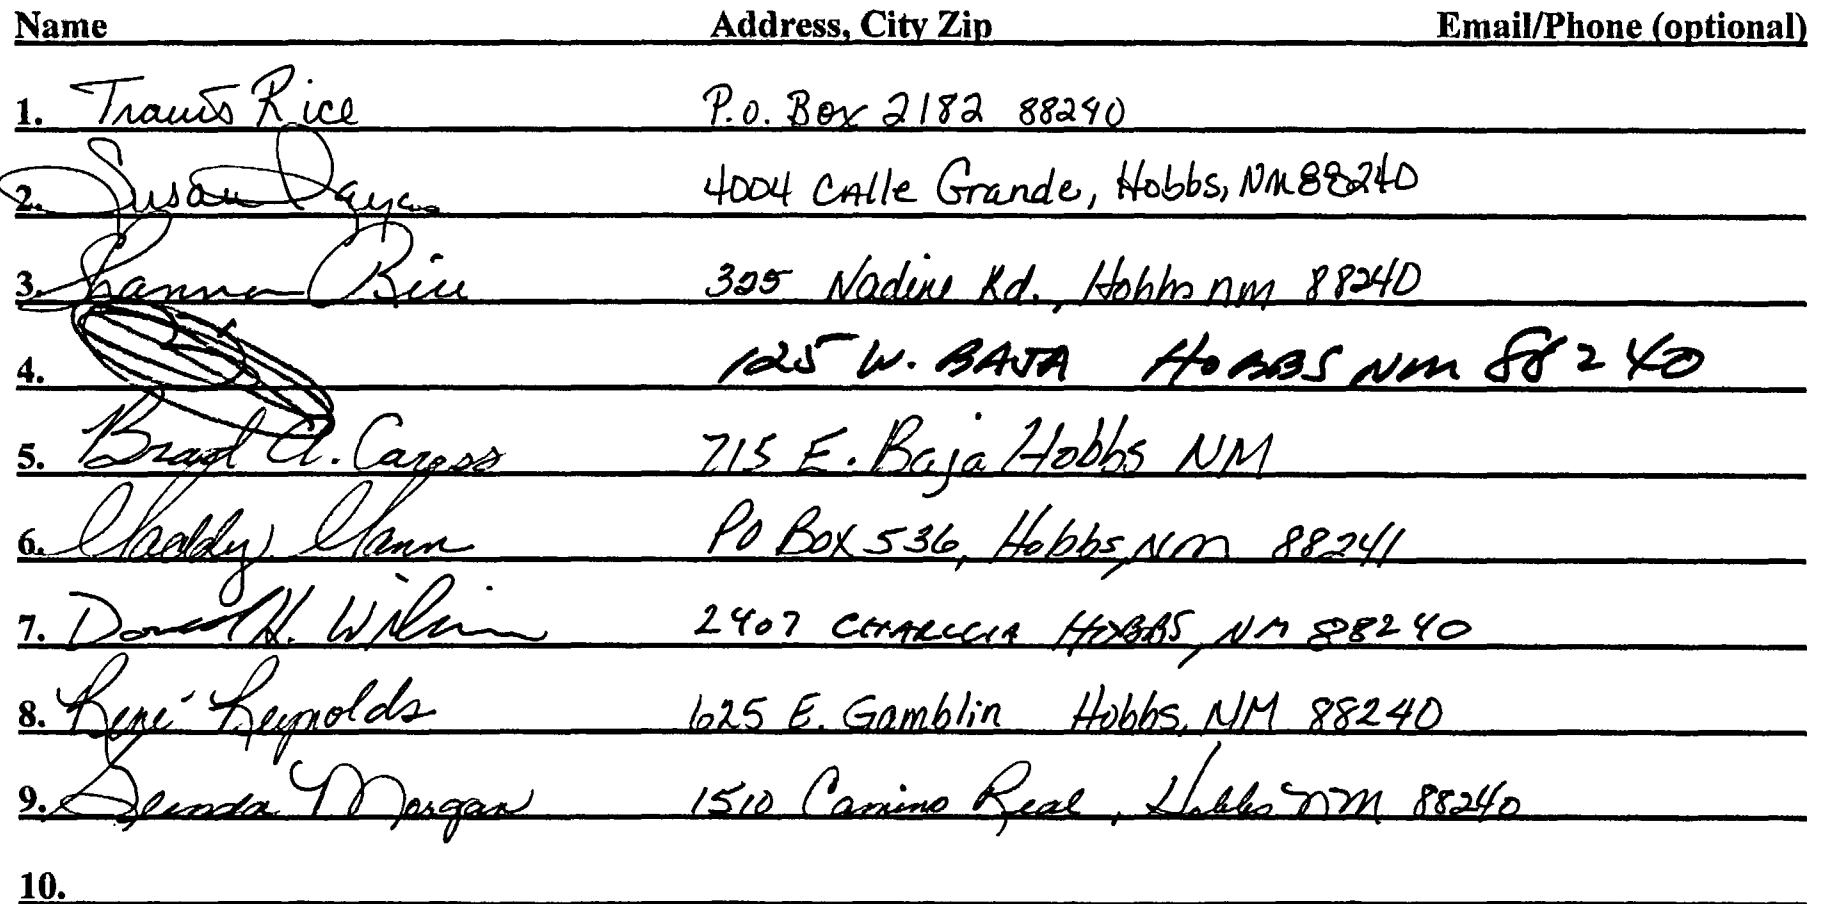 Name Address, City Zip Email/Phone (optional)
1. Travis Rice P.O. Box 2182 88240
2. Susan 4004 Calle Grande, Hobbs, NM 88240
3. Shannon Rice 325 Nadine Rd., Hobbs nm 88240
4. 125 W. BAJA HOBBS NM 88240
5. Brad A. 715 E. Baja Hobbs NM
6. PO Box 536, Hobbs, NM 88241
7. H. 2407 HOBBS, NM 88240
8. René Reynolds 1625 E. Gamblin Hobbs, NM 88240
9. Glenda Morgan 1510 Camino Real, Hobbs NM 88240
10.